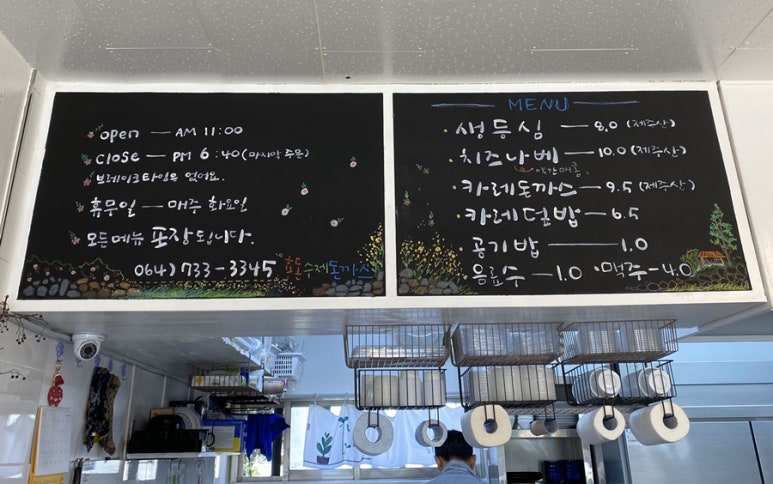 open — AM 11:00
close — PM 6:40 (마지막 주문)
브레이크타임은 없어요.
휴무일 — 매주 화요일
모든메뉴 포장됩니다.
064) 733-3345 흐돈수제돈까스
MENU
· 생등심 — 8.0 (제주산)
· 치즈나베 — 10.0 (제주산)
약간매콤
· 카레돈까스 — 9.5 (제주산)
· 카레덮밥 — 6.5
· 공기밥 — 1.0
· 음료수 — 1.0 · 맥주 — 4.0